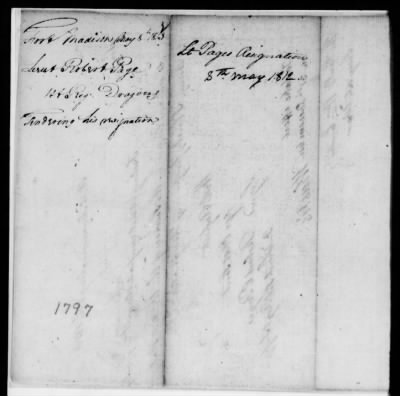 Fort Madison May 8th 1812
Lieut Robert Page
1st Reg. Dragoons
Tendering his resignation
1797
Lt Pages Resignation
8th May 1812